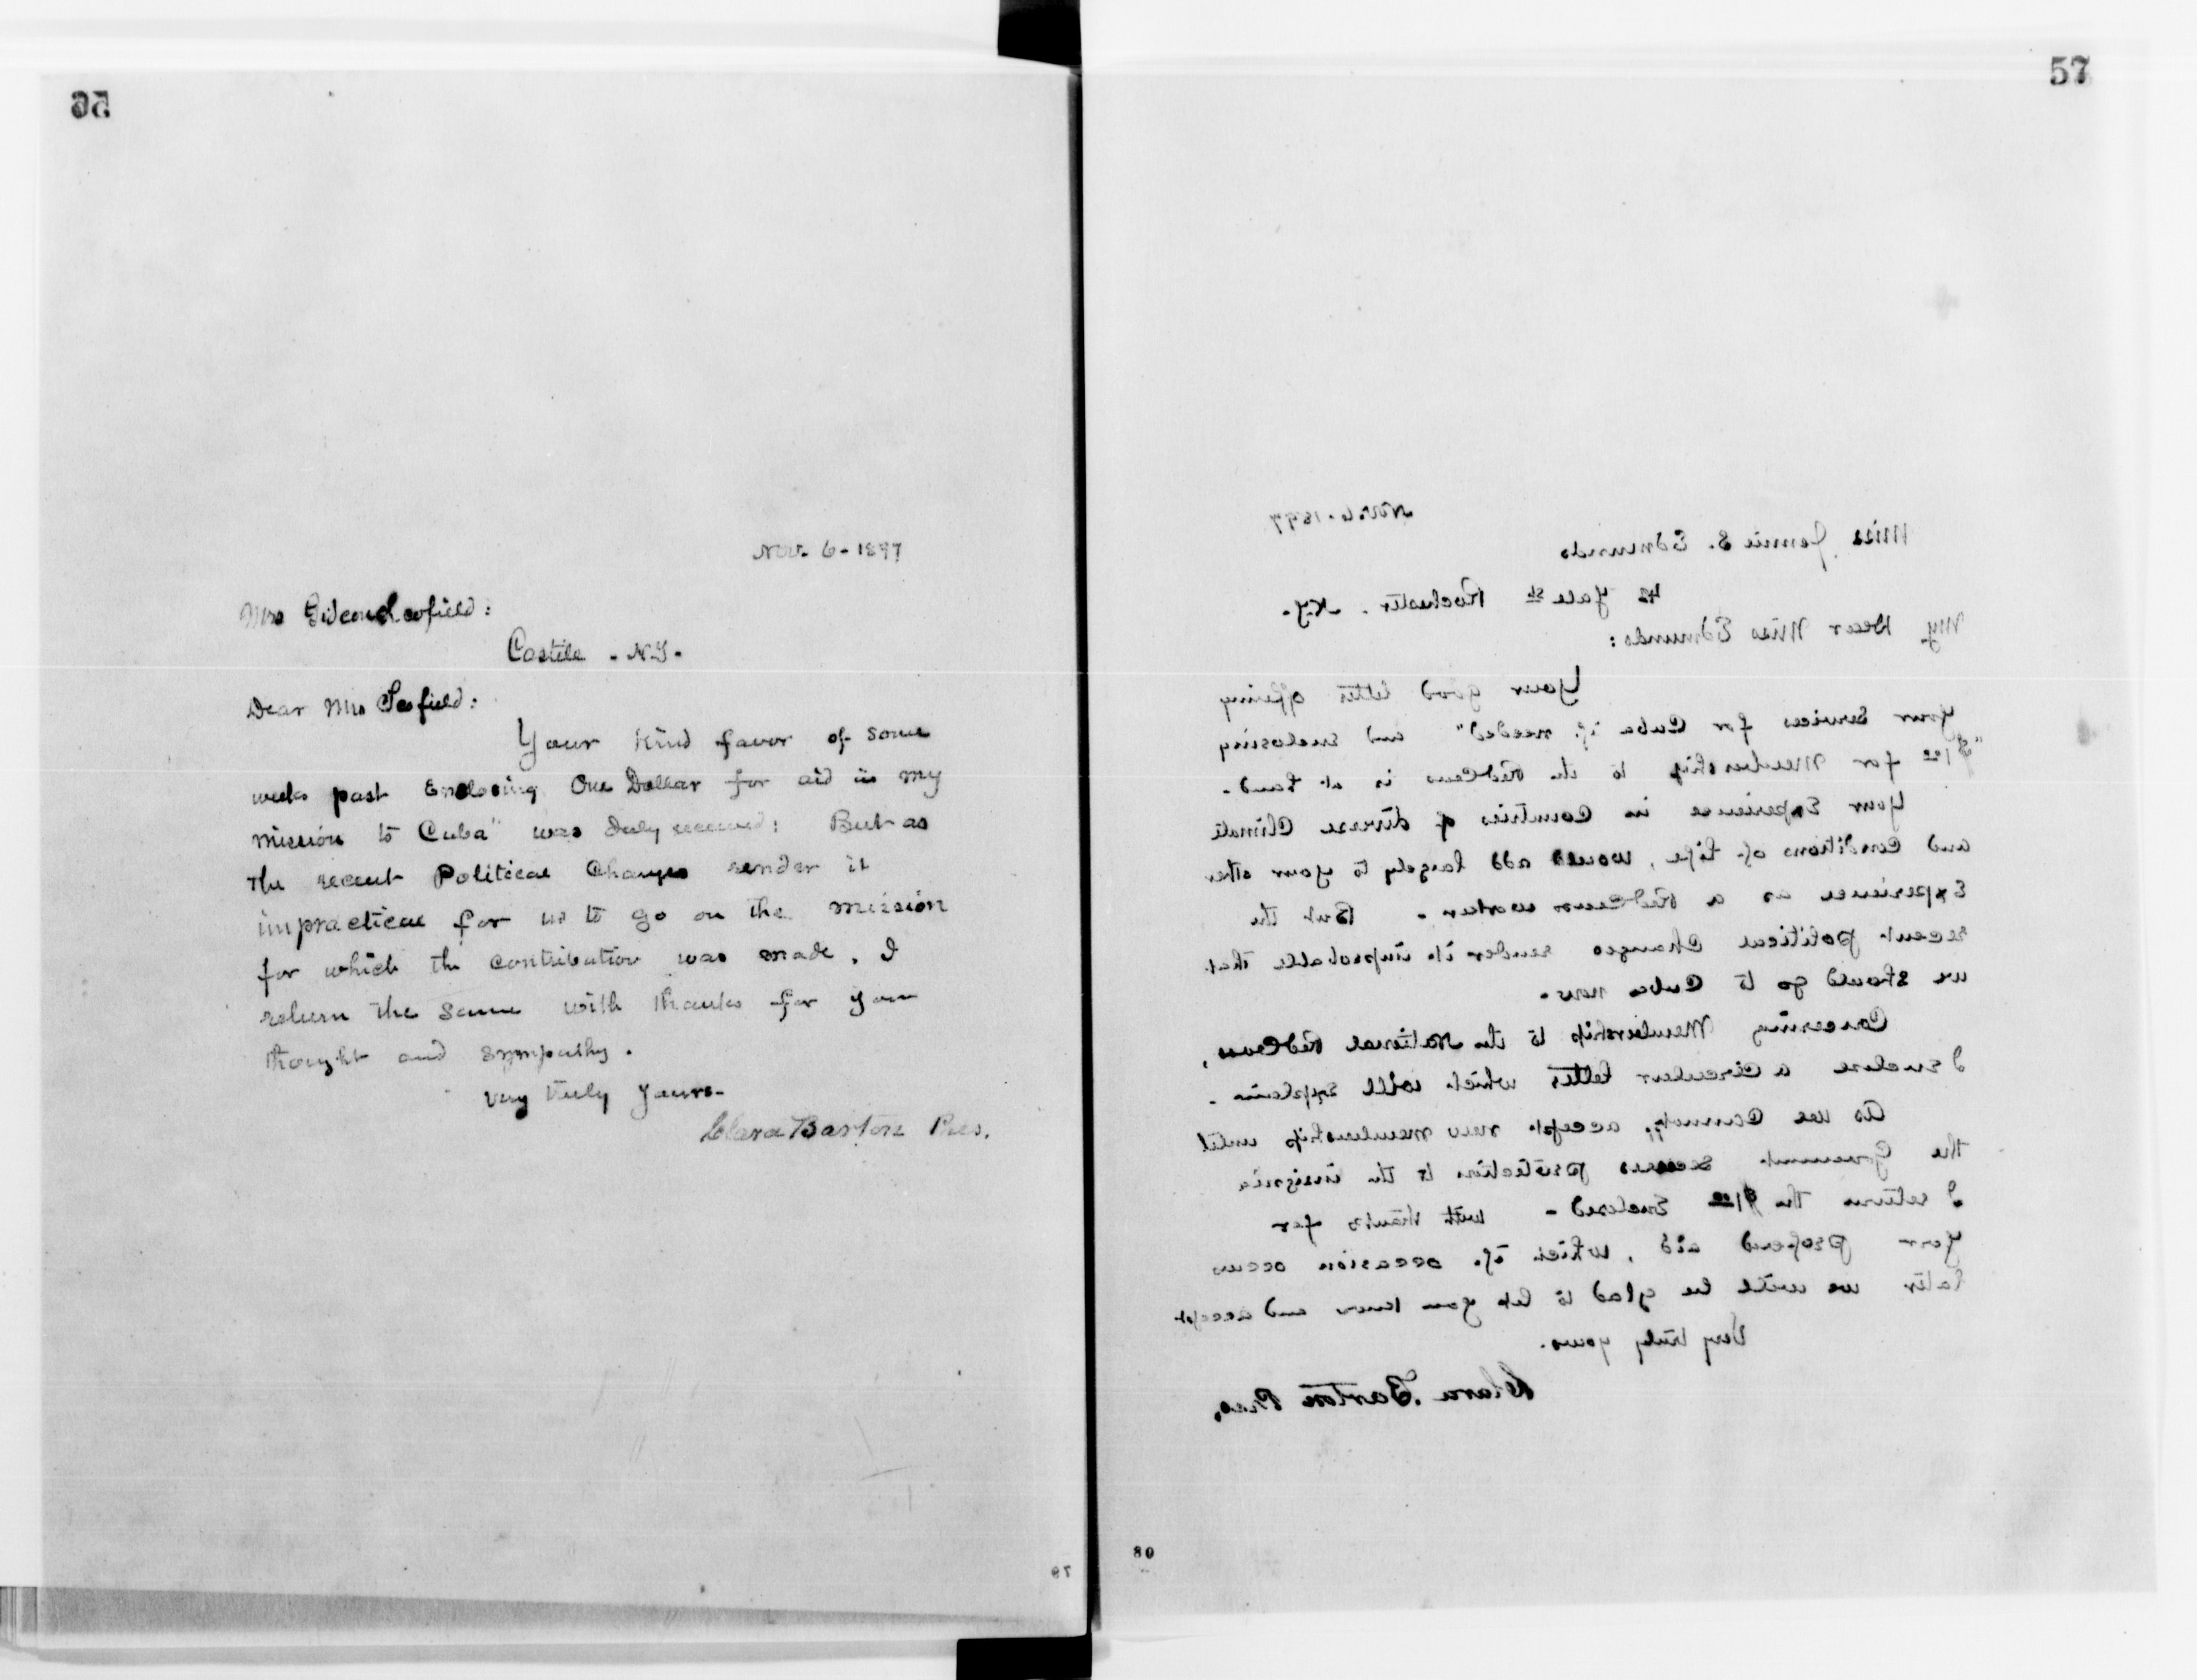 56
Nov. 6 - 1897
Mrs Gideon Scofield:
Castile - N.Y.
Dear Mrs Scofield:
Your kind favor of some
weeks past Enclosing One Dollar for aid in my
mission to Cuba" was duly received: But as
The recent Political Changes render it
impractical for us to go on the mission
for which the contribution was made, I
return the same with thanks for your
thought and sympathy.
Very truly yours-
Clara Barton Pres.
79
57
Nov. 6 - 1897
Miss Jennie S. Edmunds
42 Yale st Rochester. N.Y.
My Dear Miss Edmunds:
Your good letter offering
your services for Cuba if needed" and enclosing
"$1.00 for Membership to the Red Cross is at hand.
Your Experience in Countries of diverse Climate
and Conditions of life, would add largely to your other
Experience as a Red Cross worker - But the
recent political changes render it improbable that
we should go to Cuba now.
Concerning Membership to the National Red Cross,
I enclose a circular letter which will explain.
As we cannot accept new membership until
the Government secures protection to the insignia
I return the $1.00 Enclosed - with thanks for
your profered aid, which if occasion occurs
later we will be glad to let you know and accept
Very truly yours.
Clara Barton Pres.
80